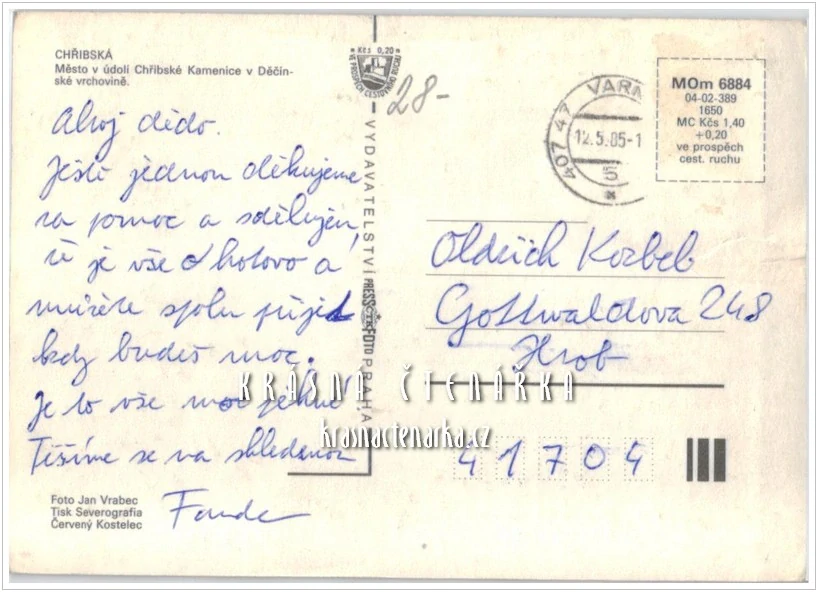 CHŘIBSKÁ
Město v údolí Chřibské Kamenice v Děčín-
ské vrchovině.
Ahoj dědo.
Ještě jednou děkujeme
za pomoc a sdělujem,
že je vše hotovo a
můžete spolu přijet
kdy budeš moc.
Je to vše moc pěkné
Těšíme se na shledanou
Foto Jan Vrabec
Tisk Severografia
Červený Kostelec
Kčs 0,20
VE PROSPĚCH CESTOVNÍHO RUCHU
28-
VYDAVATELSTVÍ PRESSFOTO PRAHA
407 47 VARN
12.5.85-1
5
MOm 6884
04-02-389
1650
MC Kčs 1,40
+0,20
ve prospěch
cest. ruchu
Oldřich Korbel
Gottwaldova 248
Hrob
41704
KRÁSNÁ ČTENÁŘKA
krasnactenarka.cz